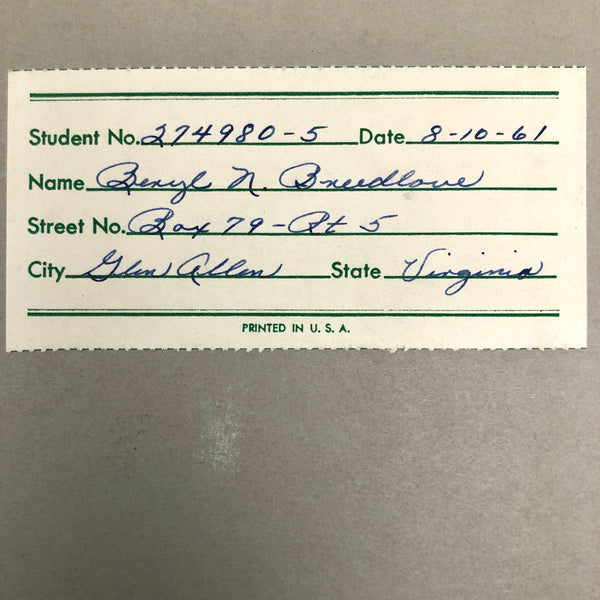 Student No. 274980-5 Date 8-10-61
Name Beryl N. Breedlove
Street No. Box 79-Rt 5
City Glen Allen State Virginia
PRINTED IN U. S. A.